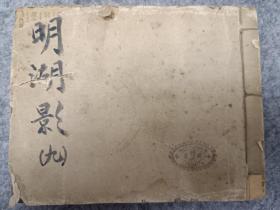 明湖影
(九)